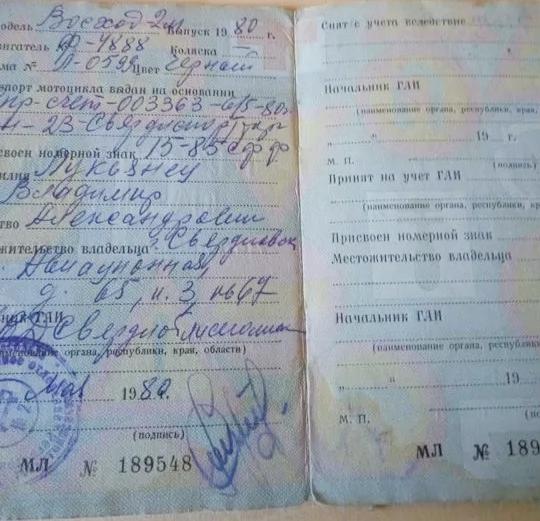 одель Восход-2м Выпуск 1980 г.
вигатель Ф-4888 Коляска —
ма № Л-0599 Цвет черный
порт мотоцикла выдан на основании
пр-счет-003363-6/5-80г.
23-Свердл
своен номерной знак 15-85
милия Лукьянец
Владимир
ство Александрович
жительство владельца г. Свердловск
Авиационная
д. 65, к. 3, кв 67
ник ГАИ
Свердл
именование органа, республики, края, области)
мая 1980.
(подпись)
МЛ № 189548
Снят с учета вследствие
Начальник ГАИ
(наименование органа, республики, края,
„ “ 19 г.
М. П. (подпись)
Принят на учет ГАИ
(наименование органа, республики, края,
Присвоен номерной знак
Местожительство владельца
Начальник ГАИ
(наименование органа, республики,
„ “ 19
М. П.
МЛ № 189